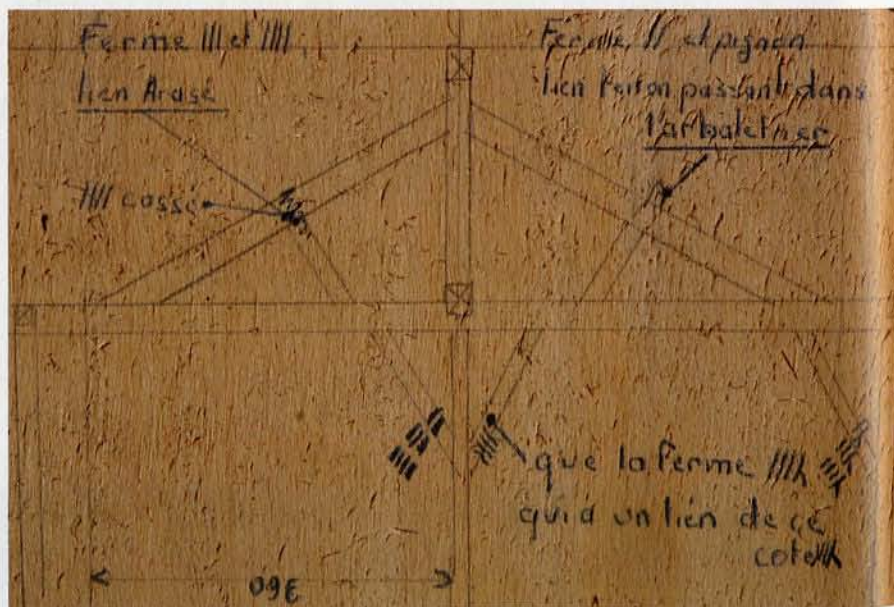 Ferme III et IIII
lien Arasé
IIII cassé
Ferme, II et pignon
lien passant dans
l'arbaletrier
que la Ferme
qui a un lien de ce
coté
360